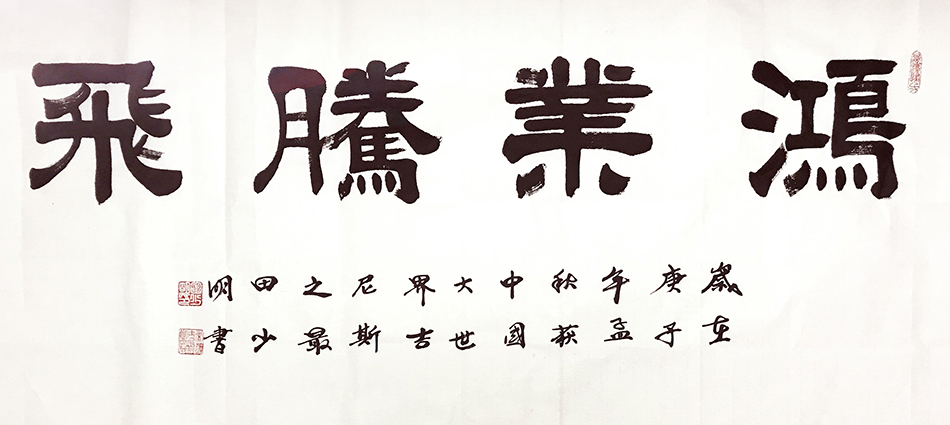 鴻業騰飛
歲在
庚子
年孟
秋获
中國
大世
界吉
尼斯
之最
田少
明書